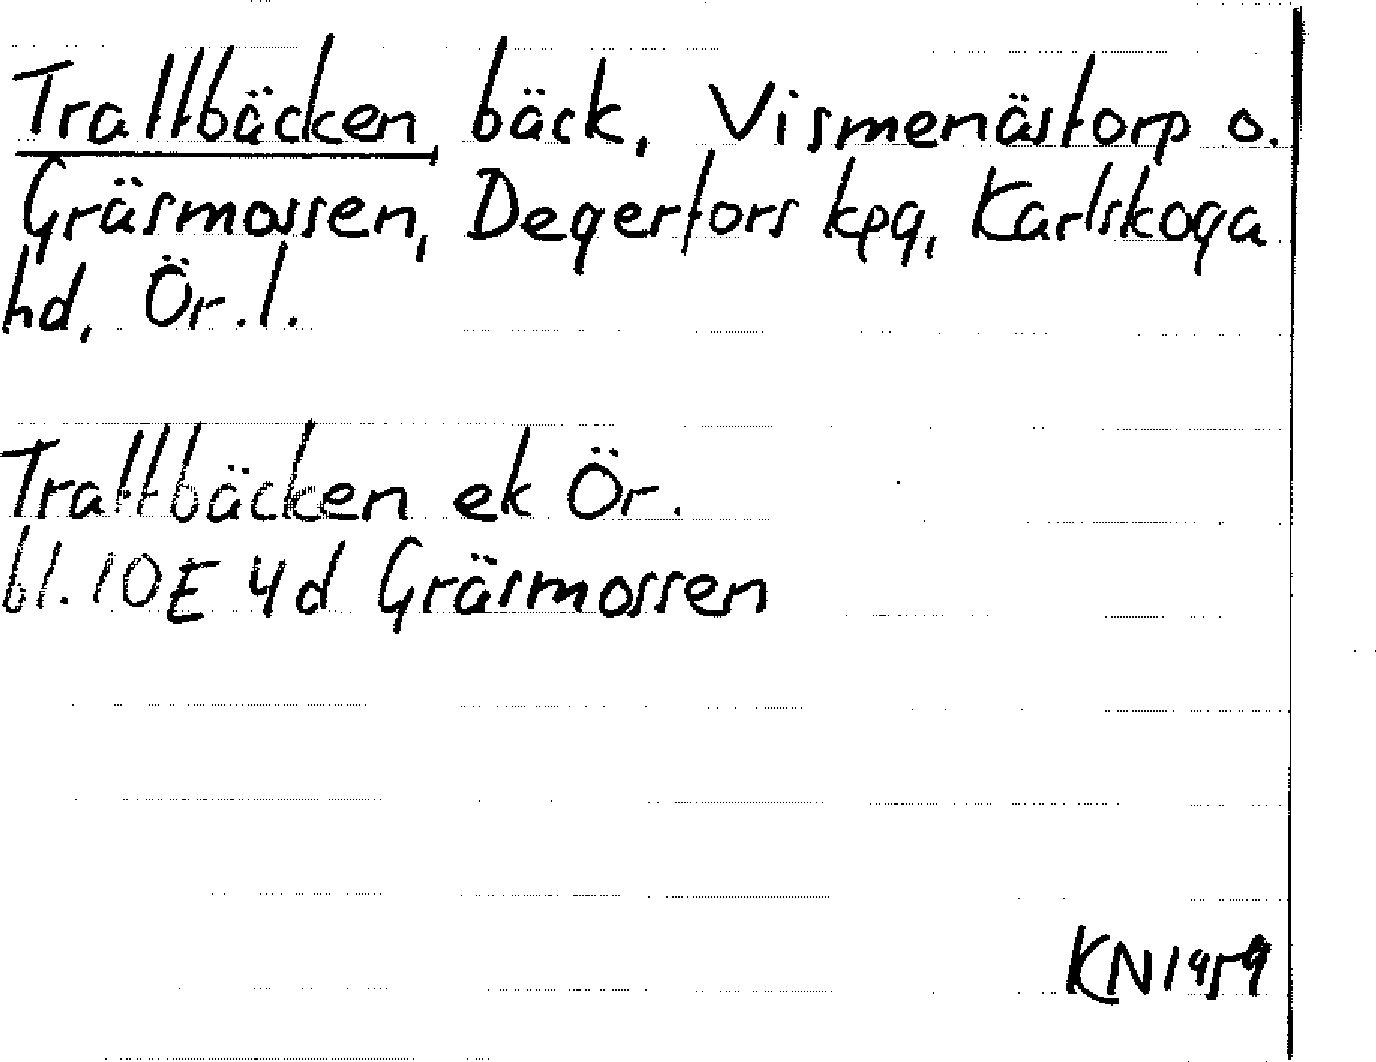 Tralltbäcken bäck, Vismenästorp o.
Gräsmossen, Degerfors kpg, Karlskoga
hd, Ör.l.
Tralltbäcken ek Ör.
bl. 10E 4d Gräsmossen
KN1959